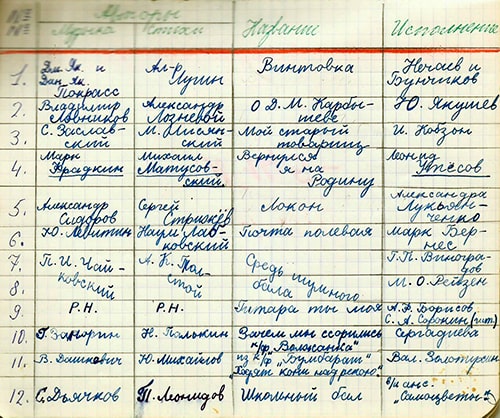 №№ Авторы Название Исполнение
пп Музыка Стихи
1. Дм. Як. и Дан. Як. Покрасс Ал-р Лугин Винтовка Нечаев и Бунчиков
2. Владимир Ловников Александр Лозневой О Д.М. Карбышеве Ю. Якушев
3. С. Заславский М. Лисянский Мой старый товарищ И. Кобзон
4. Марк Фрадкин Михаил Матусовский Вернулся я на Родину Леонид Утёсов
5. Александр Сидоров Сергей Стрижев Локон Александра Лукьянченко
6. Ю. Левитин Наум Лабковский Почта полевая Марк Бернес
7. П.И. Чайковский А.К. Толстой Средь шумного бала Г.П. Виноградов
8. М.О. Рейзен
9. Р.Н. Р.Н. Гитара ты моя А.Ф. Борисов, С.А. Сорокин (гит.)
10. Г. Заморин Н. Палькин Зачем мы ссорились Сергадиева
11. В. Дашкевич Ю. Михайлов к/ф "Бумбараш" "Ходят кони над рекою" Вал. Золотухин
12. С. Дьячков Т. Леонидов Школьный бал в/и анс. "Самоцветы"